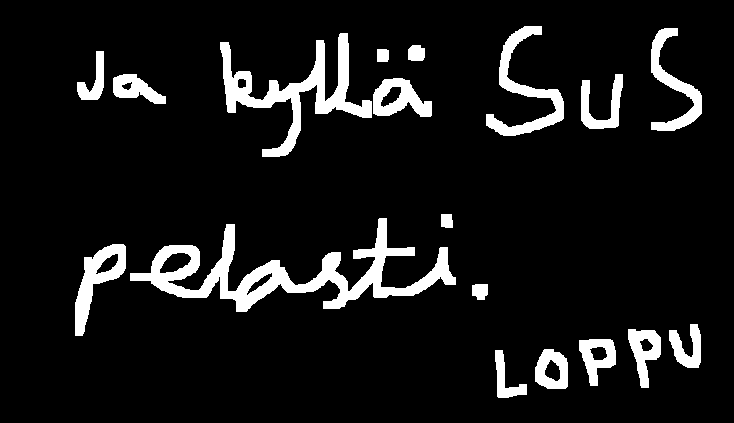 Ja kyllä SUS
pelasti.
LOPPU